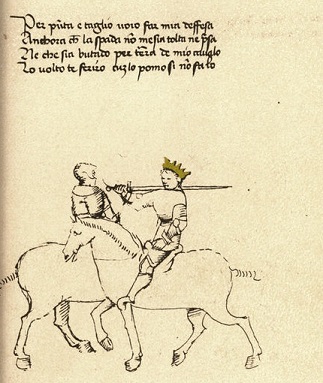 Per punta e taglio voio far mia deffesa
Anchora che la spada no me sia tolta ne presa
Ne che sia butado per terra de mio cavallo
Lo volto te feriro cu lo pomo si no fallo